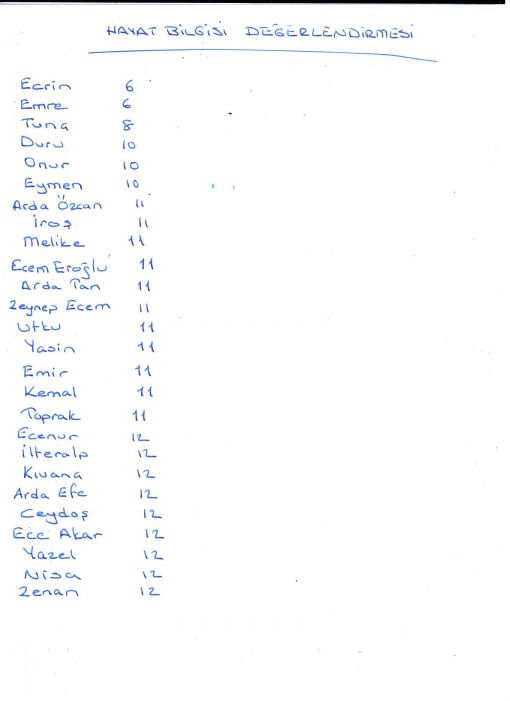 HAYAT BİLGİSİ DEĞERLENDİRMESİ
Ecrin 6
Emre 6
Tuna 8
Duru 10
Onur 10
Eymen 10
Arda Özcan 11
İroş 11
Melike 11
Ecem Eroğlu 11
Arda Tan 11
Zeynep Ecem 11
Utku 11
Yasin 11
Emir 11
Kemal 11
Toprak 11
Ecenur 12
İlteralp 12
Kıvanç 12
Arda Efe 12
Ceydoş 12
Ece Akar 12
Yazel 12
Nisa 12
Zenan 12